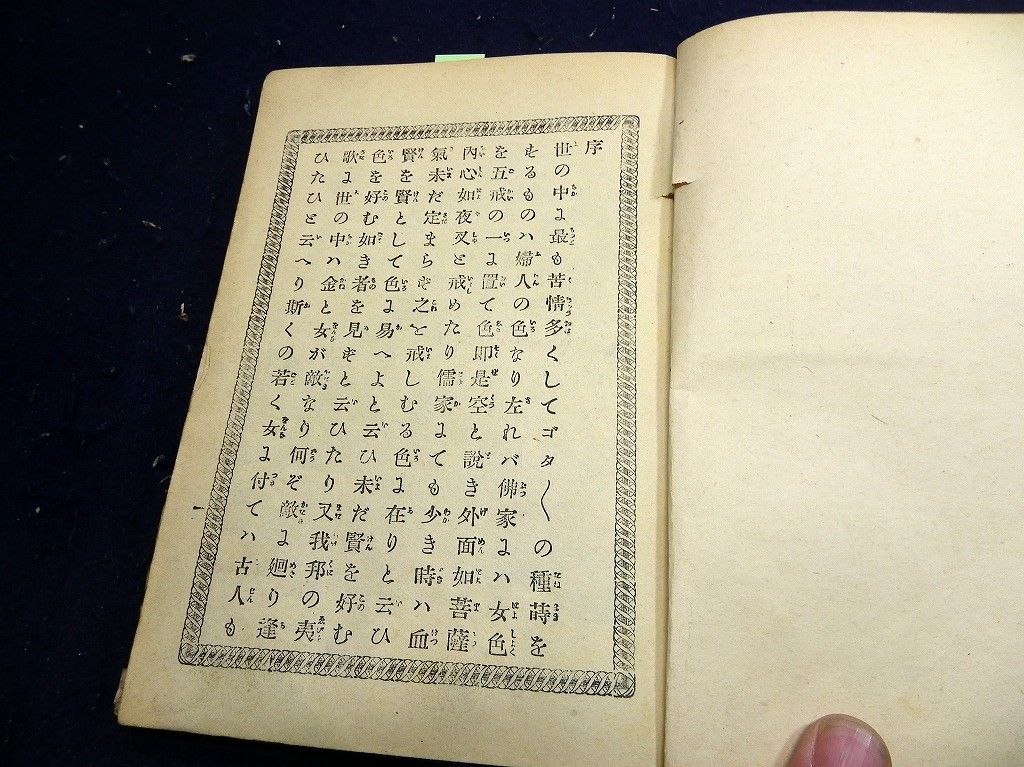 序
世の中に最も苦情多くしてゴタ〱の種蒔を
するものハ婦人の色なり左れバ佛家にハ女色
を五戒の一に置て色即是空と説き外面如菩薩
內心如夜叉と戒めたり儒家にても少き時ハ血
氣未だ定まらず之を戒しむる色に在りと云ひ
賢を賢として色に易へよと云ひ未だ賢を好む
色を好む如き者を見ずと云ひたり又我邦の夷
歌に世の中ハ金と女が敵なり何ぞ敵に廻り逢
ひたひと云へり斯くの若く女に付てハ古人も